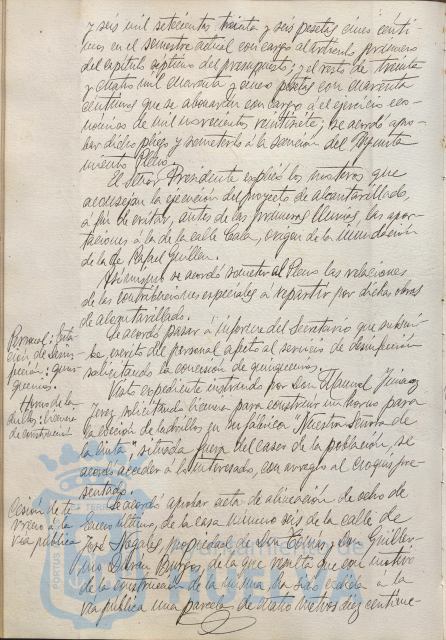 y seis mil setecientas treinta y seis pesetas cinco centi
mos en el semestre actual con cargo al artículo primero
del capítulo séptimo del presupuesto; y el resto de treinta
y cuatro mil cuarenta y cinco pesetas con cuarenta
centimos que se abonarán con cargo al ejercicio eco-
nómico de mil novecientos veintisiete; se acordó apro-
bar dicho pliego y someterlo á la sanción del Ayunta
miento Pleno.
El señor Presidente explicó los motivos que
aconsejan la ejecución del proyecto de alcantarillado,
a fin de evitar, antes de las primeras lluvias, las apor-
taciones á la de la calle Cala, origen de la inundación
de la de Rafael Guillen.
Asimismo se acordó someter al Pleno las relaciones
de las contribuciones especiales á repartir por dichas obras
de alcantarillado.
Se acordó pasar á informe del Secretario que suscri-
be, escrito del personal afecto al servicio de
solicitando la concesión de quinquenios.
Visto expediente instruido por Don Manuel
Jerez, solicitando licencia para construir un horno para
la cocción de ladrillos en su fábrica "Nuestra Señora de
la Cinta", situada fuera del casco de la población, se
acordó acceder á lo interesado, con arreglo al croquis pre-
sentado.
Se acordó aprobar acta de alineación de ocho de
de la casa número seis de la calle de
José Nogales, propiedad de Don Tomás y Don Guiller-
mo Duran Burgos, de la que resulta que con motivo
de la construcción de la misma ha sido cedida á la
vía pública una parcela de cuatro metros diez centíme-
Personal:
quenios.
Horno de la
licencia
de construcción
Cesión de te
rreno á la
vía pública